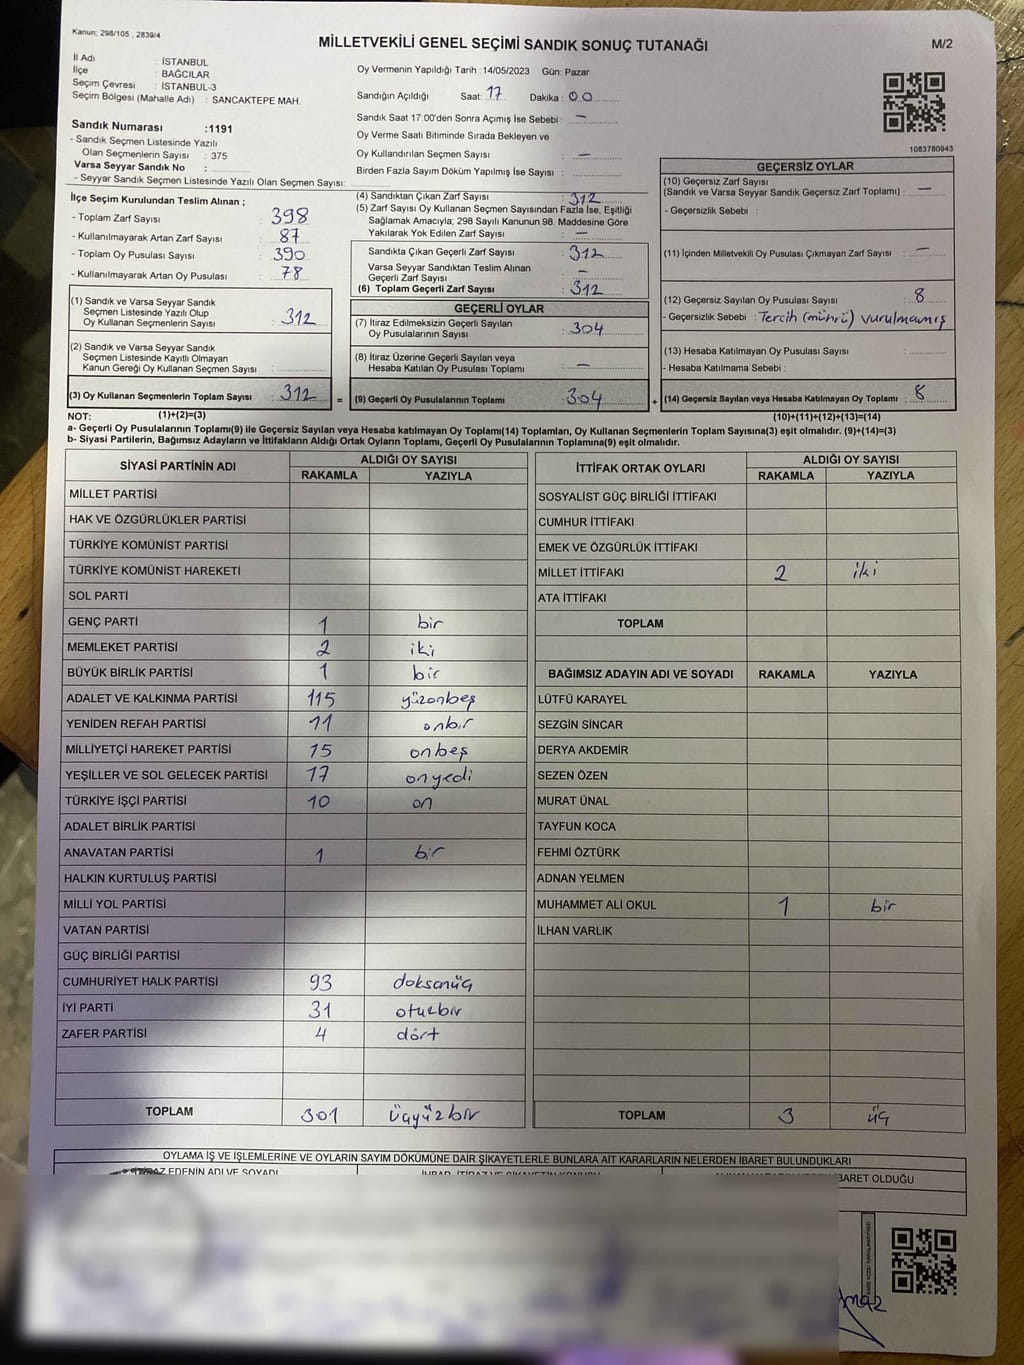 Kanun; 298/105 , 2839/4
MİLLETVEKİLİ GENEL SEÇİMİ SANDIK SONUÇ TUTANAĞI
M/2
İl Adı : İSTANBUL
İlçe : BAĞCILAR
Seçim Çevresi : İSTANBUL-3
Seçim Bölgesi (Mahalle Adı) : SANCAKTEPE MAH.
Sandık Numarası :1191
- Sandık Seçmen Listesinde Yazılı
Olan Seçmenlerin Sayısı : 375
Varsa Seyyar Sandık No :
- Seyyar Sandık Seçmen Listesinde Yazılı Olan Seçmen Sayısı:
Oy Vermenin Yapıldığı Tarih :14/05/2023 Gün: Pazar
Sandığın Açıldığı Saat: 17 Dakika : 00
Sandık Saat 17:00'den Sonra Açımış İse Sebebi : —
Oy Verme Saati Bitiminde Sırada Bekleyen ve
Oy Kullandırılan Seçmen Sayısı : —
Birden Fazla Sayım Döküm Yapılmış İse Sayısı :
1083780943
İlçe Seçim Kurulundan Teslim Alınan ;
- Toplam Zarf Sayısı : 398
- Kullanılmayarak Artan Zarf Sayısı : 87
- Toplam Oy Pusulası Sayısı : 390
- Kullanılmayarak Artan Oy Pusulası : 78
(1) Sandık ve Varsa Seyyar Sandık
Seçmen Listesinde Yazılı Olup
Oy Kullanan Seçmenlerin Sayısı : 312
(2) Sandık ve Varsa Seyyar Sandık
Seçmen Listesinde Kayıtlı Olmayan
Kanun Gereği Oy Kullanan Seçmen Sayısı :
(3) Oy Kullanan Seçmenlerin Toplam Sayısı : 312 =
(4) Sandıktan Çıkan Zarf Sayısı : 312
(5) Zarf Sayısı Oy Kullanan Seçmen Sayısından Fazla İse, Eşitliği
Sağlamak Amacıyla, 298 Sayılı Kanunun 98. Maddesine Göre
Yakılarak Yok Edilen Zarf Sayısı : —
Sandıkta Çıkan Geçerli Zarf Sayısı : 312
Varsa Seyyar Sandıktan Teslim Alınan
Geçerli Zarf Sayısı : —
(6) Toplam Geçerli Zarf Sayısı : 312
GEÇERLİ OYLAR
(7) İtiraz Edilmeksizin Geçerli Sayılan
Oy Pusulalarının Sayısı : 304
(8) İtiraz Üzerine Geçerli Sayılan veya
Hesaba Katılan Oy Pusulası Toplamı : —
(9) Geçerli Oy Pusulalarının Toplamı : 304 +
GEÇERSİZ OYLAR
(10) Geçersiz Zarf Sayısı
(Sandık ve Varsa Seyyar Sandık Geçersiz Zarf Toplamı) : —
- Geçersizlik Sebebi :
(11) İçinden Milletvekili Oy Pusulası Çıkmayan Zarf Sayısı : —
(12) Geçersiz Sayılan Oy Pusulası Sayısı : 8
- Geçersizlik Sebebi : Tercih (mührü) vurulmamış
(13) Hesaba Katılmayan Oy Pusulası Sayısı :
- Hesaba Katılmama Sebebi :
(14) Geçersiz Sayılan veya Hesaba Katılmayan Oy Toplamı : 8
NOT: (1)+(2)=(3)
(10)+(11)+(12)+(13)=(14)
a- Geçerli Oy Pusulalarının Toplamı(9) ile Geçersiz Sayılan veya Hesaba katılmayan Oy Toplamı(14) Toplamları, Oy Kullanan Seçmenlerin Toplam Sayısına(3) eşit olmalıdır. (9)+(14)=(3)
b- Siyasi Partilerin, Bağımsız Adayların ve İttifakların Aldığı Ortak Oyların Toplamı, Geçerli Oy Pusulalarının Toplamına(9) eşit olmalıdır.
SİYASİ PARTİNİN ADI ALDIĞI OY SAYISI
RAKAMLA YAZIYLA
MİLLET PARTİSİ
HAK VE ÖZGÜRLÜKLER PARTİSİ
TÜRKİYE KOMÜNİST PARTİSİ
TÜRKİYE KOMÜNİST HAREKETİ
SOL PARTİ
GENÇ PARTİ 1 bir
MEMLEKET PARTİSİ 2 iki
BÜYÜK BİRLİK PARTİSİ 1 bir
ADALET VE KALKINMA PARTİSİ 115 yüzonbeş
YENİDEN REFAH PARTİSİ 11 onbir
MİLLİYETÇİ HAREKET PARTİSİ 15 onbeş
YEŞİLLER VE SOL GELECEK PARTİSİ 17 onyedi
TÜRKİYE İŞÇİ PARTİSİ 10 on
ADALET BİRLİK PARTİSİ
ANAVATAN PARTİSİ 1 bir
HALKIN KURTULUŞ PARTİSİ
MİLLİ YOL PARTİSİ
VATAN PARTİSİ
GÜÇ BİRLİĞİ PARTİSİ
CUMHURİYET HALK PARTİSİ 93 doksanüç
İYİ PARTİ 31 otuzbir
ZAFER PARTİSİ 4 dört
TOPLAM 301 üçyüzbir
İTTİFAK ORTAK OYLARI ALDIĞI OY SAYISI
RAKAMLA YAZIYLA
SOSYALİST GÜÇ BİRLİĞİ İTTİFAKI
CUMHUR İTTİFAKI
EMEK VE ÖZGÜRLÜK İTTİFAKI
MİLLET İTTİFAKI 2 iki
ATA İTTİFAKI
TOPLAM
BAĞIMSIZ ADAYIN ADI VE SOYADI RAKAMLA YAZIYLA
LÜTFÜ KARAYEL
SEZGİN SİNCAR
DERYA AKDEMİR
SEZEN ÖZEN
MURAT ÜNAL
TAYFUN KOCA
FEHMİ ÖZTÜRK
ADNAN YELMEN
MUHAMMET ALİ OKUL 1 bir
İLHAN VARLIK
TOPLAM 3 üç
OYLAMA İŞ VE İŞLEMLERİNE VE OYLARIN SAYIM DÖKÜMÜNE DAİR ŞİKAYETLERLE BUNLARA AİT KARARLARIN NELERDEN İBARET BULUNDUKLARI
EDENİN ADI VE SOYADI
İBARET OLDUĞU